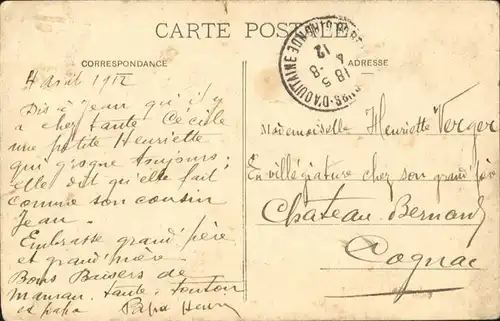 CARTE POSTALE
CORRESPONDANCE
ADRESSE
4 Août 1912
Dis à Jean qu'il y
a chez tante Cécile
une petite Henriette
qui grogne toujours;
elle dit qu'elle fait
comme son cousin
Jean.
Embrasse grand'père
et grand'mère
Bons Baisers de
maman. tante. tonton
et papa Papa Henri
Mademoiselle Henriette Verger
En villégiature chez son grand père
Chateau-Bernard
Cognac
D'AQUITAINE
18 5-8
12